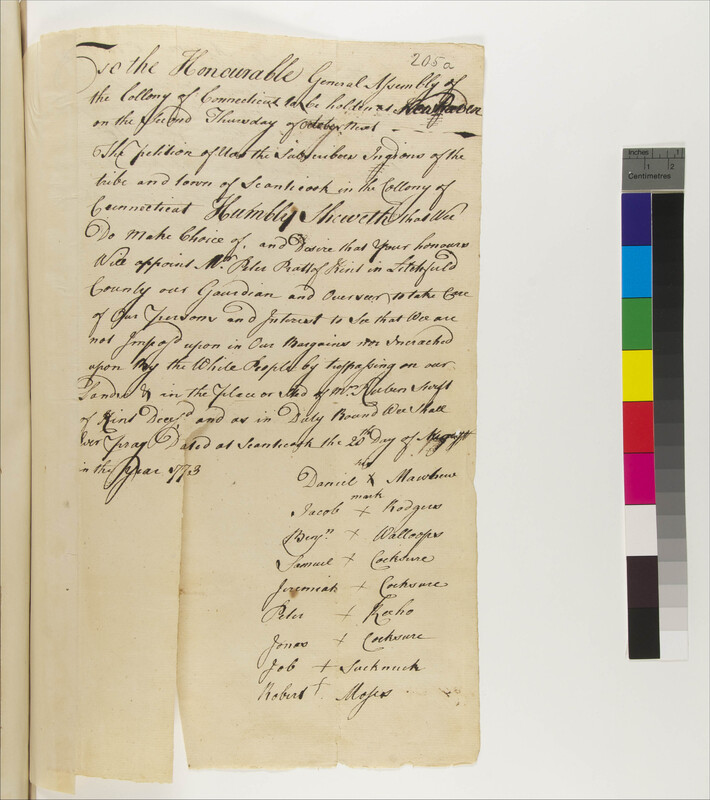 205a
To the Honourable General Assembly of
the Collony of Connecticut to be holden at New Haven
on the second Thursday of October Next
The petition of Us the Subscribers Ingions of the
tribe and town of Scanticook in the Collony of
Connecticut Humbly Sheweth that Wee
Do Make Choice of, and Desire that Your honours
Will appoint Mr. Peter Pratt of Kint in Litchfield
County our Gaurdian and Overseer to take Care
of Our Persons and Interest to See that Wee are
not Imposd upon in Our Bargains nor Incrached
upon By the While People by trespassing on our
Lands & in the place or Sted of Mr. Reuben Swift
of Kint Decesd and as in Duty Bound Wee Shall
Ever Pray Dated at Scanticook the 20th Day of August
in the Year 1773
his
Daniel X Mawhew
mark
Jacob + Rodgers
Benjn + Walloops
Samuel + Cocksure
Jeremiah + Cocksure
Peter + Kocho
Jonas + Cocksure
Job + Sucknuck
Robert + Moses
inches 1 2
Centimetres